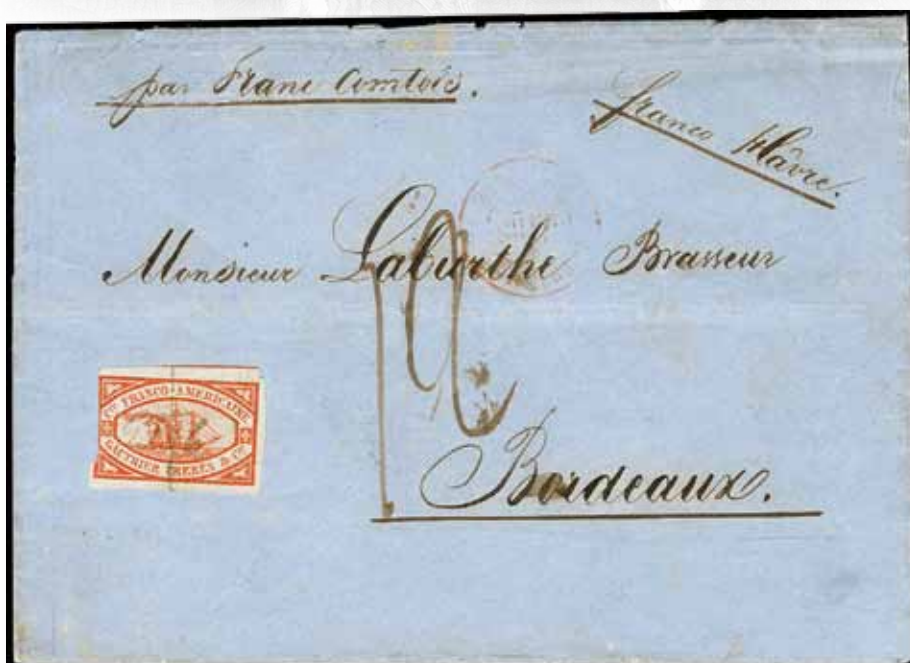 par Franc Comtois.
franco Hâvre.
Monsieur Laburthe Brasseur
12
Cie FRANCO-AMERICAINE
GAUTHIER FRERES & Cie
Bordeaux.